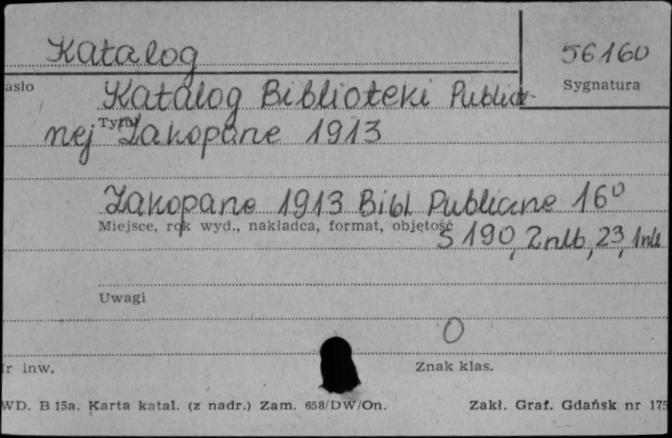 Katalog
56160
asło
Sygnatura
Katalog Biblioteki Publicz
Tytuł
nej Zakopane 1913
Zakopane 1913 Bibl Publiczne 16°
Miejsce, rok wyd., nakładca, format, objętość
S 190, 2 nlb, 23, 1 nlb
Uwagi
0
r inw.
Znak klas.
WD. B 15a. Karta katal. (z nadr.) Zam. 658/DW/On.
Zakł. Graf. Gdańsk nr 175